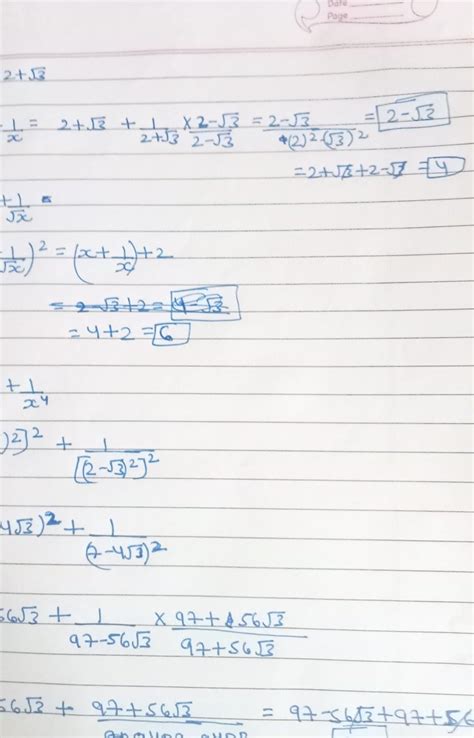 Date
Page
2+√3
1/x = 2+√3 + 1/(2+√3) × (2-√3)/(2-√3) = (2-√3)/((2)²-(√3)²) = 2-√3
= 2+√3+2-√3 = 4
+ 1/√x =
1/√x)² = (x + 1/x) + 2
= 2-√3+2 = 4-√3
= 4+2 = 6
+ 1/x⁴
)²]² + 1/[(2-√3)²]²
4√3)² + 1/(7-4√3)²
56√3 + 1/(97-56√3) × (97+56√3)/(97+56√3)
56√3 + 97+56√3 = 97-56√3+97+56